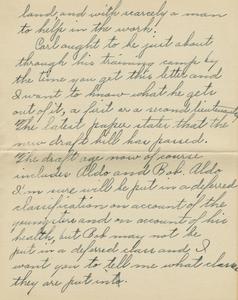 land, and with scarcely a man
to help in the work.
Carl ought to be just about
through his training camp by
the time you get this letter and
I want to know what he gets
out of it, a first or a second lieutenantcy
The latest paper states that the
new draft bill has passed.
The draft age now of course
includes Aldo and Bob. Aldo
I'm sure will be put in a deferred
classification on account of the
youngsters and on account of his
health, but Bob may not be
put in a deferred class and I
want you to tell me what class
they are put into.